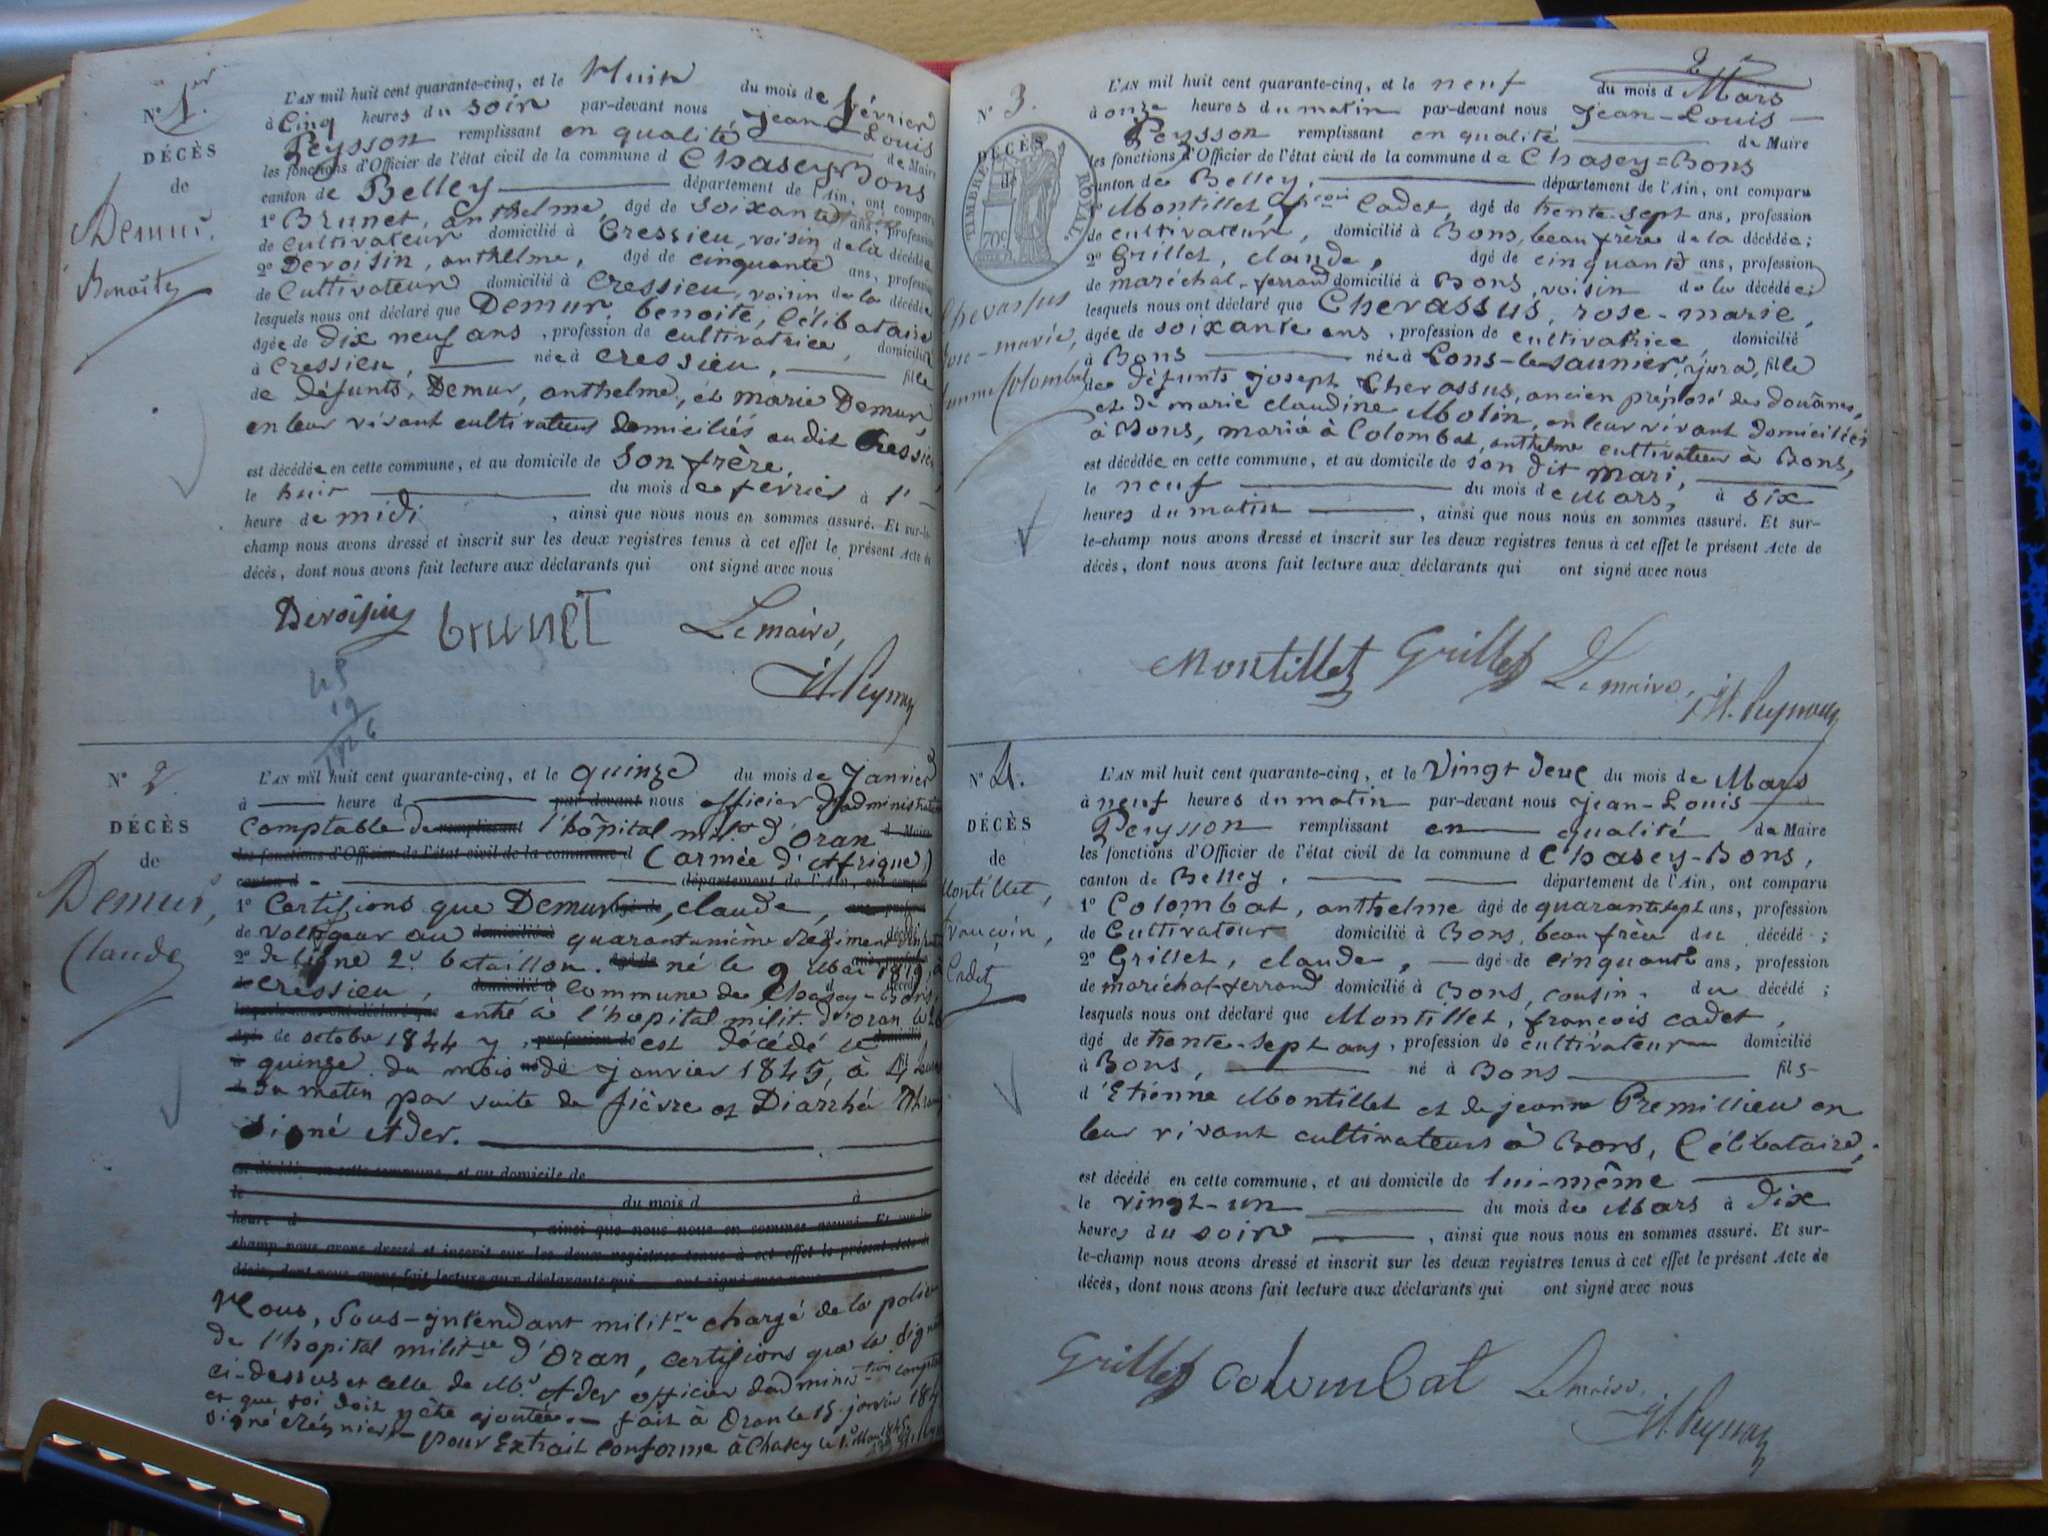 N° 1er.
DÉCÈS
de
Demur,
Benoite
L'AN mil huit cent quarante-cinq, et le huit du mois de février
à Cinq heures du soir par-devant nous jean-Louis
Peysson remplissant en qualité de Maire
les fonctions d'Officier de l'état civil de la commune d Chasey-Bons
canton de Belley département de l'Ain, ont comparu
1° Brunet, anthelme, âgé de soixante ans, profession
de cultivateur domicilié à Cressieu, voisin de la décédée
2° Devoisin, anthelme, âgé de cinquante ans, profession
de Cultivateur domicilié à Cressieu, voisin de la décédée
lesquels nous ont déclaré que Demur, benoite, Célibataire
âgée de dix neuf ans, profession de cultivatrice, domicilié
à Cressieu, née à Cressieu, fille
de défunts, Demur, anthelme, et marie Demur
en leur vivant cultivateurs domiciliés audit Cressieu
est décédée en cette commune, et au domicile de son frère,
le huit du mois de février à 1'
heure de midi, ainsi que nous nous en sommes assuré. Et sur-le-
champ nous avons dressé et inscrit sur les deux registres tenus à cet effet le présent Acte de
décès, dont nous avons fait lecture aux déclarants qui ont signé avec nous
Devoisin brunet Le maire,
JL Peysson
45
19
N° 2.
DÉCÈS
de
Demur,
Claude
L'AN mil huit cent quarante-cinq, et le quinze du mois de Janvier
à heure d par-devant nous officier d'administration
Comptable de remplissant l'hôpital milre d'Oran d Maire
les fonctions d'Officier de l'état civil de la commune d (armée d'Afrique)
canton d département de l'Ain, ont comparu
1° Certifions que Demur âgé de, claude,
de voltigeur au domicilié à quarantunième Régiment
2° de ligne 2e. bataillon. âgé de né le 9 Mai 1819, à
de Cressieu, domicilié à commune de Chasey-Bons,
lesquels nous ont déclaré que entré à l'hopital milit. d'Oran le 26
âgé de octobre 1844 y, profession de est décédé le domicilié
à quinze du mois né de janvier 1845, à 4 heures
d du matin par suite de fièvre et Diarrhé
signé Ader.
est décédé en cette commune, et au domicile de
le du mois d à
heure d, ainsi que nous nous en sommes assuré. Et sur-le-
champ nous avons dressé et inscrit sur les deux registres tenus à cet effet le présent Acte de
décès, dont nous avons fait lecture aux déclarants qui ont signé avec nous
Nous, Sous-intendant militre chargé de la police
de l'hopital militre d'Oran, certifions que la signature
ci-dessus est celle de Mr. Ader officier d'adminiction comptable
et que foi doit y être ajoutée. fait à Oran le 15 janvier 1845
signé pour Extrait conforme à Chasey le
N° 3.
DÉCÈS
de
TIMBRE ROYAL.
70c
Chevassus
rose-marie,
femme Colombat
L'AN mil huit cent quarante-cinq, et le neuf du mois d Mars
à onze heures du matin par-devant nous Jean-Louis
Peysson remplissant en qualité de Maire
les fonctions d'Officier de l'état civil de la commune de Chasey=Bons
canton de Belley, département de l'Ain, ont comparu
1° Montillet, Cadet, âgé de trente-sept ans, profession
de cultivateur, domicilié à Bons, beau frère de la décédée;
2° Grillet, claude, âgé de cinquante ans, profession
de maréchal-ferrand domicilié à Bons, voisin de la décédée;
lesquels nous ont déclaré que Chevassus, rose-marie,
âgée de soixante ans, profession de cultivatrice, domicilié
à Bons née à Lons-le-Saunier, jura, fille
de défunts joseph Chevassus, ancien préposé des douânes,
et de marie claudine Molin, en leur vivant domiciliés
à Bons, mariée à Colombat, anthelme cultivateur à Bons,
est décédée en cette commune, et au domicile de son dit mari,
le neuf du mois de Mars, à six
heures du matin, ainsi que nous nous en sommes assuré. Et sur-
le-champ nous avons dressé et inscrit sur les deux registres tenus à cet effet le présent Acte de
décès, dont nous avons fait lecture aux déclarants qui ont signé avec nous
Montillet Grillet Le maire,
JL Peysson
N° 4.
DÉCÈS
de
Montillet,
françois,
Cadet
L'AN mil huit cent quarante-cinq, et le Vingt deux du mois de Mars
à neuf heures du matin par-devant nous jean-Louis
Peysson remplissant en qualité de Maire
les fonctions d'Officier de l'état civil de la commune d Chasey-Bons,
canton de Belley, département de l'Ain, ont comparu
1° Colombat, anthelme âgé de quarante sept ans, profession
de Cultivateur domicilié à Bons, beau frère du décédé;
2° Grillet, claude, âgé de cinquante ans, profession
de maréchal-ferrand domicilié à Bons, cousin, du décédé;
lesquels nous ont déclaré que Montillet, françois cadet,
âgé de trente-sept ans, profession de cultivateur domicilié
à Bons, né à Bons fils
d'Etienne Montillet et de jeanne Premillieu en
leur vivant cultivateurs à Bons, Célibataire,
est décédé en cette commune, et au domicile de lui-même
le vingt-un du mois de Mars à dix
heures du soir, ainsi que nous nous en sommes assuré. Et sur-
le-champ nous avons dressé et inscrit sur les deux registres tenus à cet effet le présent Acte de
décès, dont nous avons fait lecture aux déclarants qui ont signé avec nous
Grillet Colombat Le maire,
JL Peysson